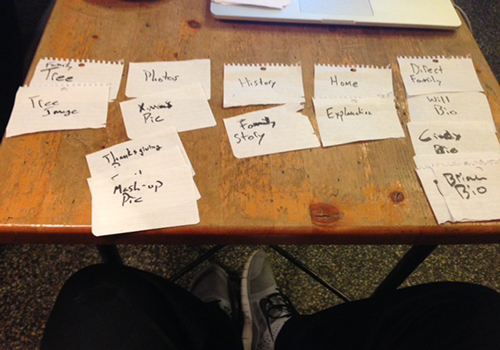 Family
Tree
Tree
Image
Photos
X-mas
Pic
Thanksgiving
Mash-up
Pic
History
Family
Story
Home
Explanation
Direct
Family
Will
Bio
Cindy
Bio
Brian
Bio